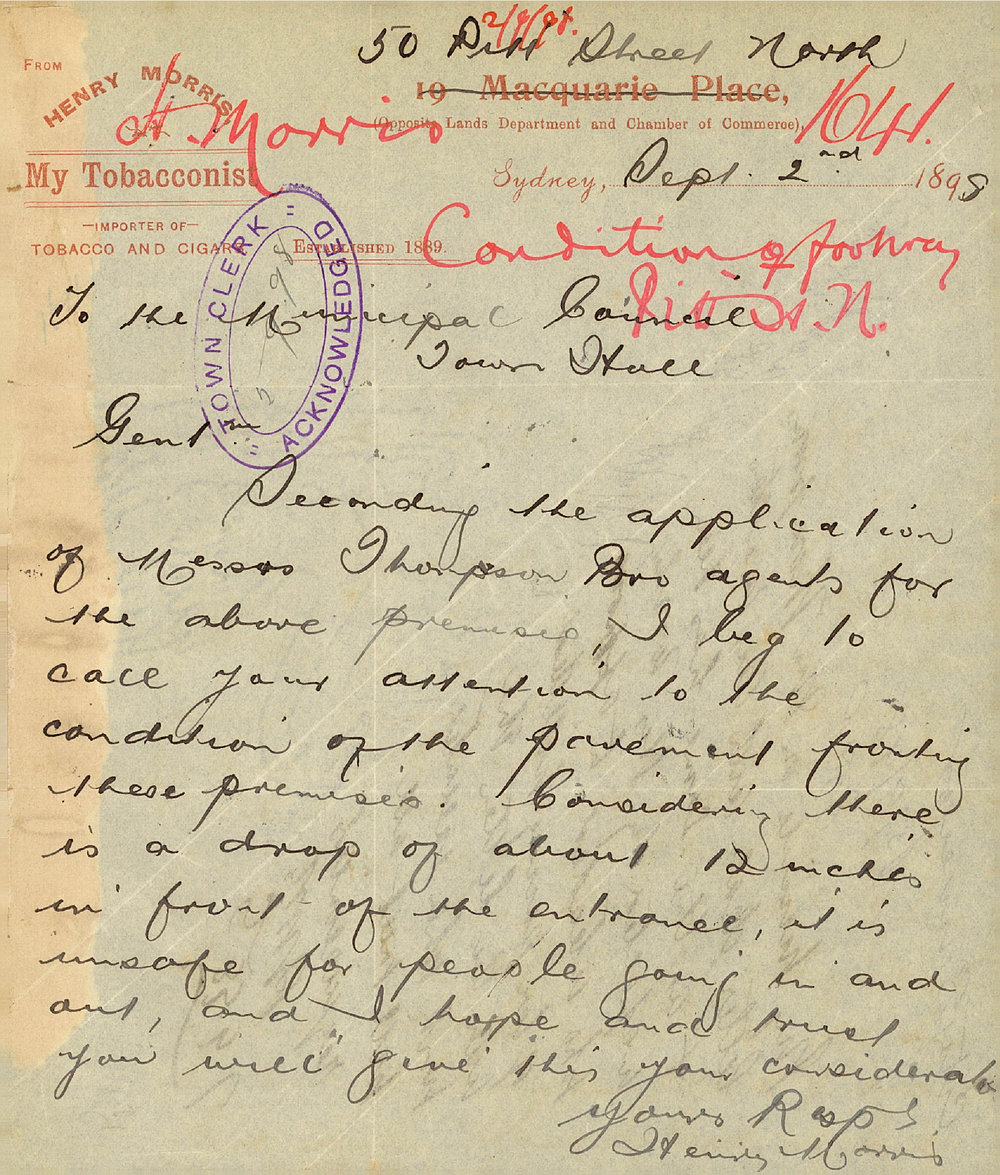 2/9/98.
50 Pitt Street North
FROM
HENRY MORRIS
19 Macquarie Place,
(Opposite Lands Department and Chamber of Commerce)
H. Morris
1641.
My Tobacconist
Sydney, Sept. 2nd 1898
IMPORTER OF
TOBACCO AND CIGARS
ESTABLISHED 1889.
Condition of footway
Pitt St. N.
TOWN CLERK
ACKNOWLEDGED
2-9-98
To the Municipal Council
Town Hall
Gentmn
Seconding the application
of Messrs Thompson Bro agents for
the above premises, I beg to
call your attention to the
condition of the pavement fronting
these premises. Considering there
is a drop of about 12 inches
in front of the entrance, it is
unsafe for people going in and
out, and I hope and trust
you will give this your considerat
yours Resp
Henry Morris